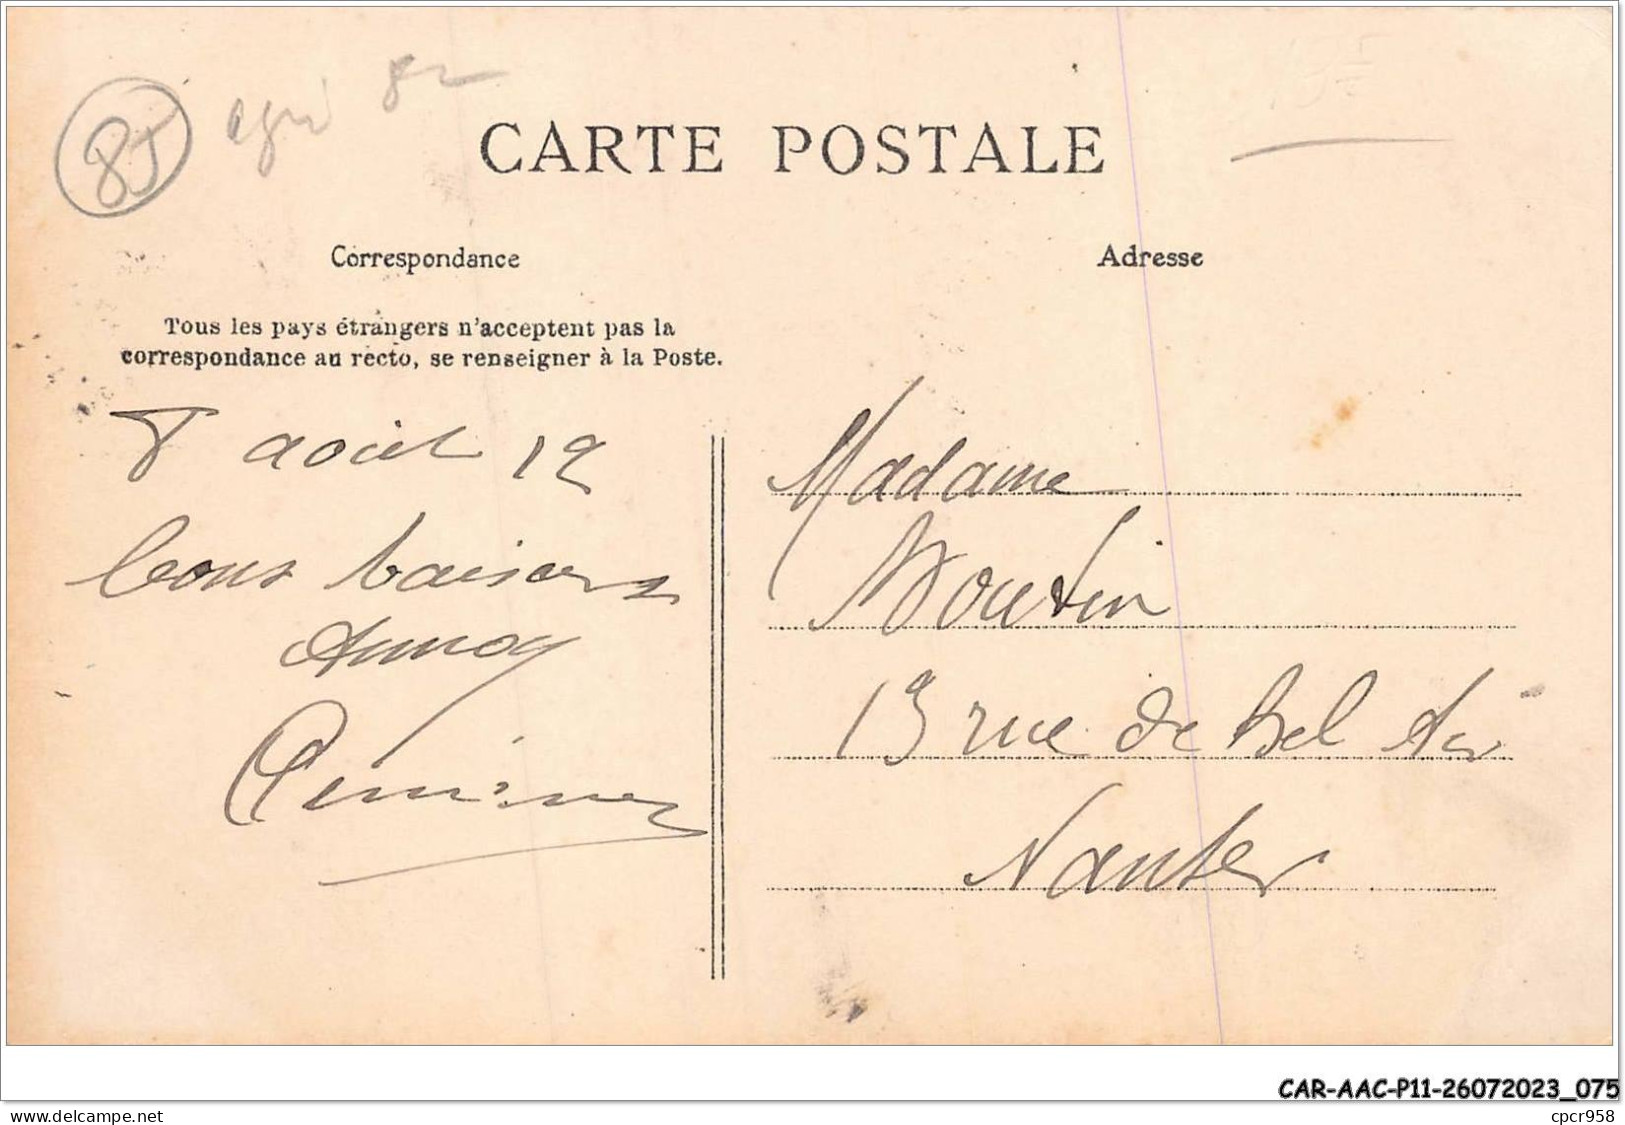 85
agri 82
CARTE POSTALE
Correspondance
Tous les pays étrangers n'acceptent pas la
correspondance au recto, se renseigner à la Poste.
8 août 19
bons baisers
Adresse
Madame
Boutin
13 rue de Bel Air
Nantes
CAR-AAC-P11-26072023_075
delcampe.net
cpcr958